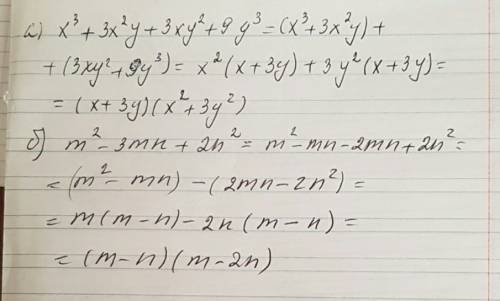 а) x³+3x²y+3xy²+9y³=(x³+3x²y)+
+(3xy²+9y³)= x²(x+3y)+3y²(x+3y)=
=(x+3y)(x²+3y²)
б) m²-3mn+2n²= m²-mn-2mn+2n²=
=(m²-mn)-(2mn-2n²)=
=m(m-n)-2n(m-n)=
=(m-n)(m-2n)